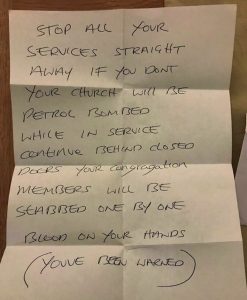 STOP ALL YOUR
SERVICES STRAIGHT
AWAY IF YOU DONT
YOUR CHURCH WILL BE
PETROL BOMBED
WHILE IN SERVICE
CONTINUE BEHIND CLOSED
DOORS YOUR CONGRAGATION
MEMBERS WILL BE
STABBED ONE BY ONE
BLOOD ON YOUR HANDS
(YOUVE BEEN WARNED)